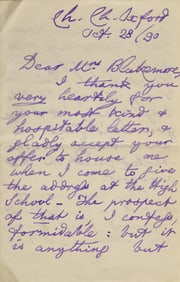 Ch. Ch. Oxford
Oct. 28/90
Dear Mrs Blakemore,
I thank you
very heartily for
your most kind &
hospitable letter, &
gladly accept your
offer to house me
when I come to give
the address at the High
School - The prospect
of that is, I confess
formidable: but it
is anything but